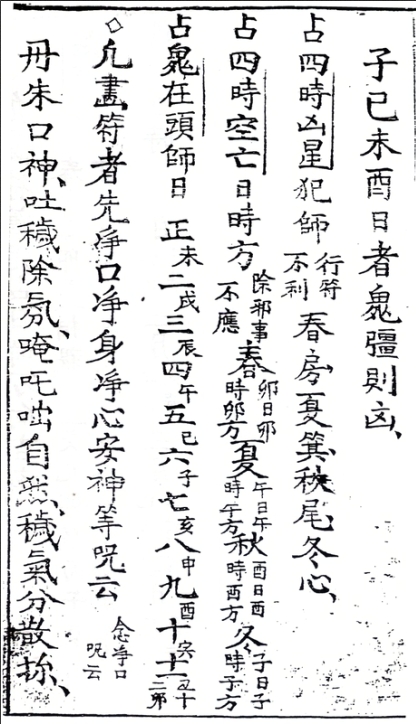 子巳未酉日者鬼彊則凶、
占四時凶星犯師行符不利春房夏箕秋尾冬心、
占四時空亡日時方除邪事不應春卯日卯時卯方夏午日午時午方秋酉日酉時酉方冬子日子時子方
占鬼在頭師日正未二戌三辰四午五巳六子七亥八申九酉十寅十一丑十二卯
◇凢畫符者先净口净身净心安神等咒云念净口咒云
丹朱口神、吐穢除氛、唵吒咄自然、穢氣分散